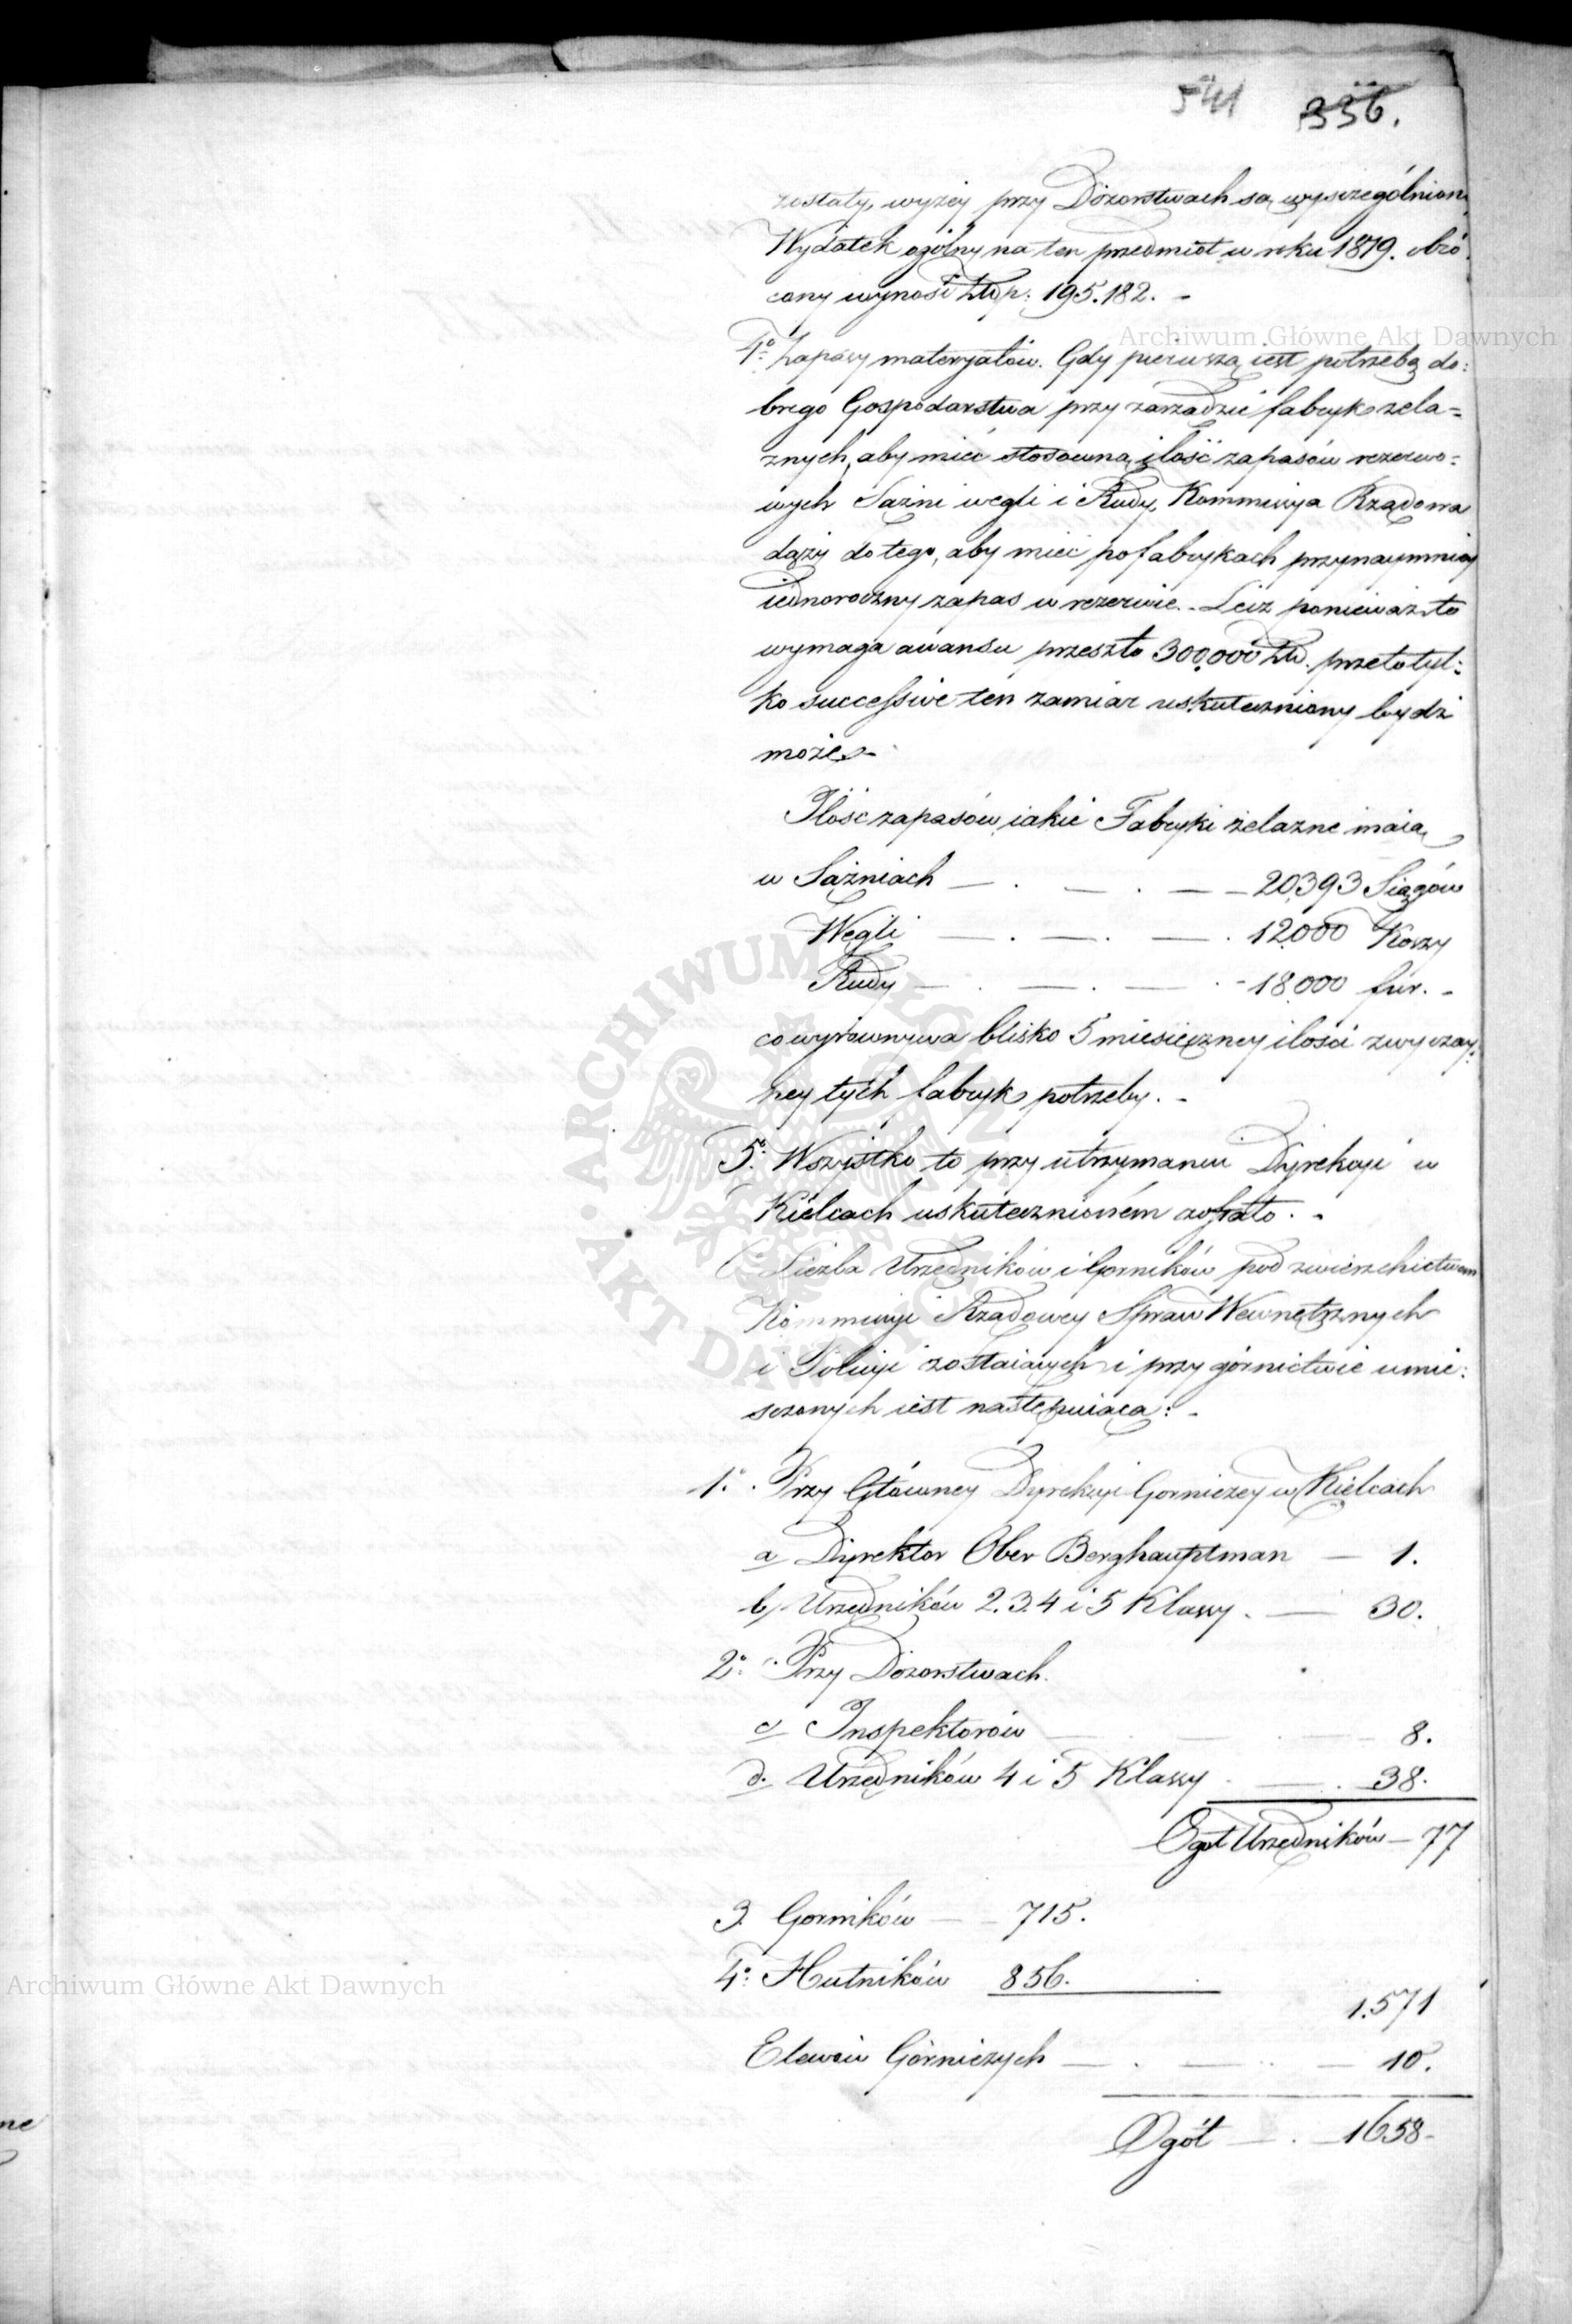 541 336.
zostały, wyżey przy Dozorstwach są wyszczególnion
Wydatek ogólny na ten przedmiot w roku 1819. obró
cony wynosi Złłp: 195.182. -
4° Zapasy materyałów. Gdy pierwszą iest potrzebą do:
brego Gospodarstwa przy zarządzie fabryk żela=
znych, aby mieć stosowną ilość zapasów rezerwo=
wych Sążni węgli i Rudy, Kommissya Rządowa
dąży do tego, aby mieć po fabrykach przynaymniey
iednoroczny zapas w rezerwie. - Lecz ponieważ to
wymaga awansu przeszło 300,000 Złł. przeto tyl:
ko successive ten zamiar uskuteczniony bydź
może. -
Ilość zapasów, iakie Fabryki żelazne maią
w Sążniach — . — . — — 20,393 Siągów
Węgli — . — . — . 12.000 Koszy
Rudy — . — . — . - 18.000 fur. -
co wyrównywa blisko 5 miesięczney ilości zwyczay:
ney tych fabryk potrzeby. -
5°. Wszystko to przy utrzymaniu Dyrekcyi w
Kielcach uskutecznioném zostało. -
Liczba Urzędników i Gorników pod zwierzchictwem
Kommissyi Rządowey Spraw Wewnętrznych
i Policyi zostaiących i przy górnictwie umie:
sczonych iest następuiąca: -
1°. Przy Główney Dyrekcyi Gorniczey w Kielcach
a Dyrektor Ober Berghauptman — 1.
b, Urzędników 2.3.4 i 5 Klassy. — 30.
2°. Przy Dozorstwach.
c Inspektorów — — — 8.
d. Urzędników 4 i 5 Klassy . — . 38.
Ogół Urzędników — 77
3. Gorników — - 715.
4°. Hutników 856.
1.571
Elewów Górniczych — . — . — 10.
Ogół — . — 1658 -
ne
Archiwum Główne Akt Dawnych
Archiwum Główne Akt Dawnych
ARCHIWUM GŁÓWNE • AKT DAWNYCH